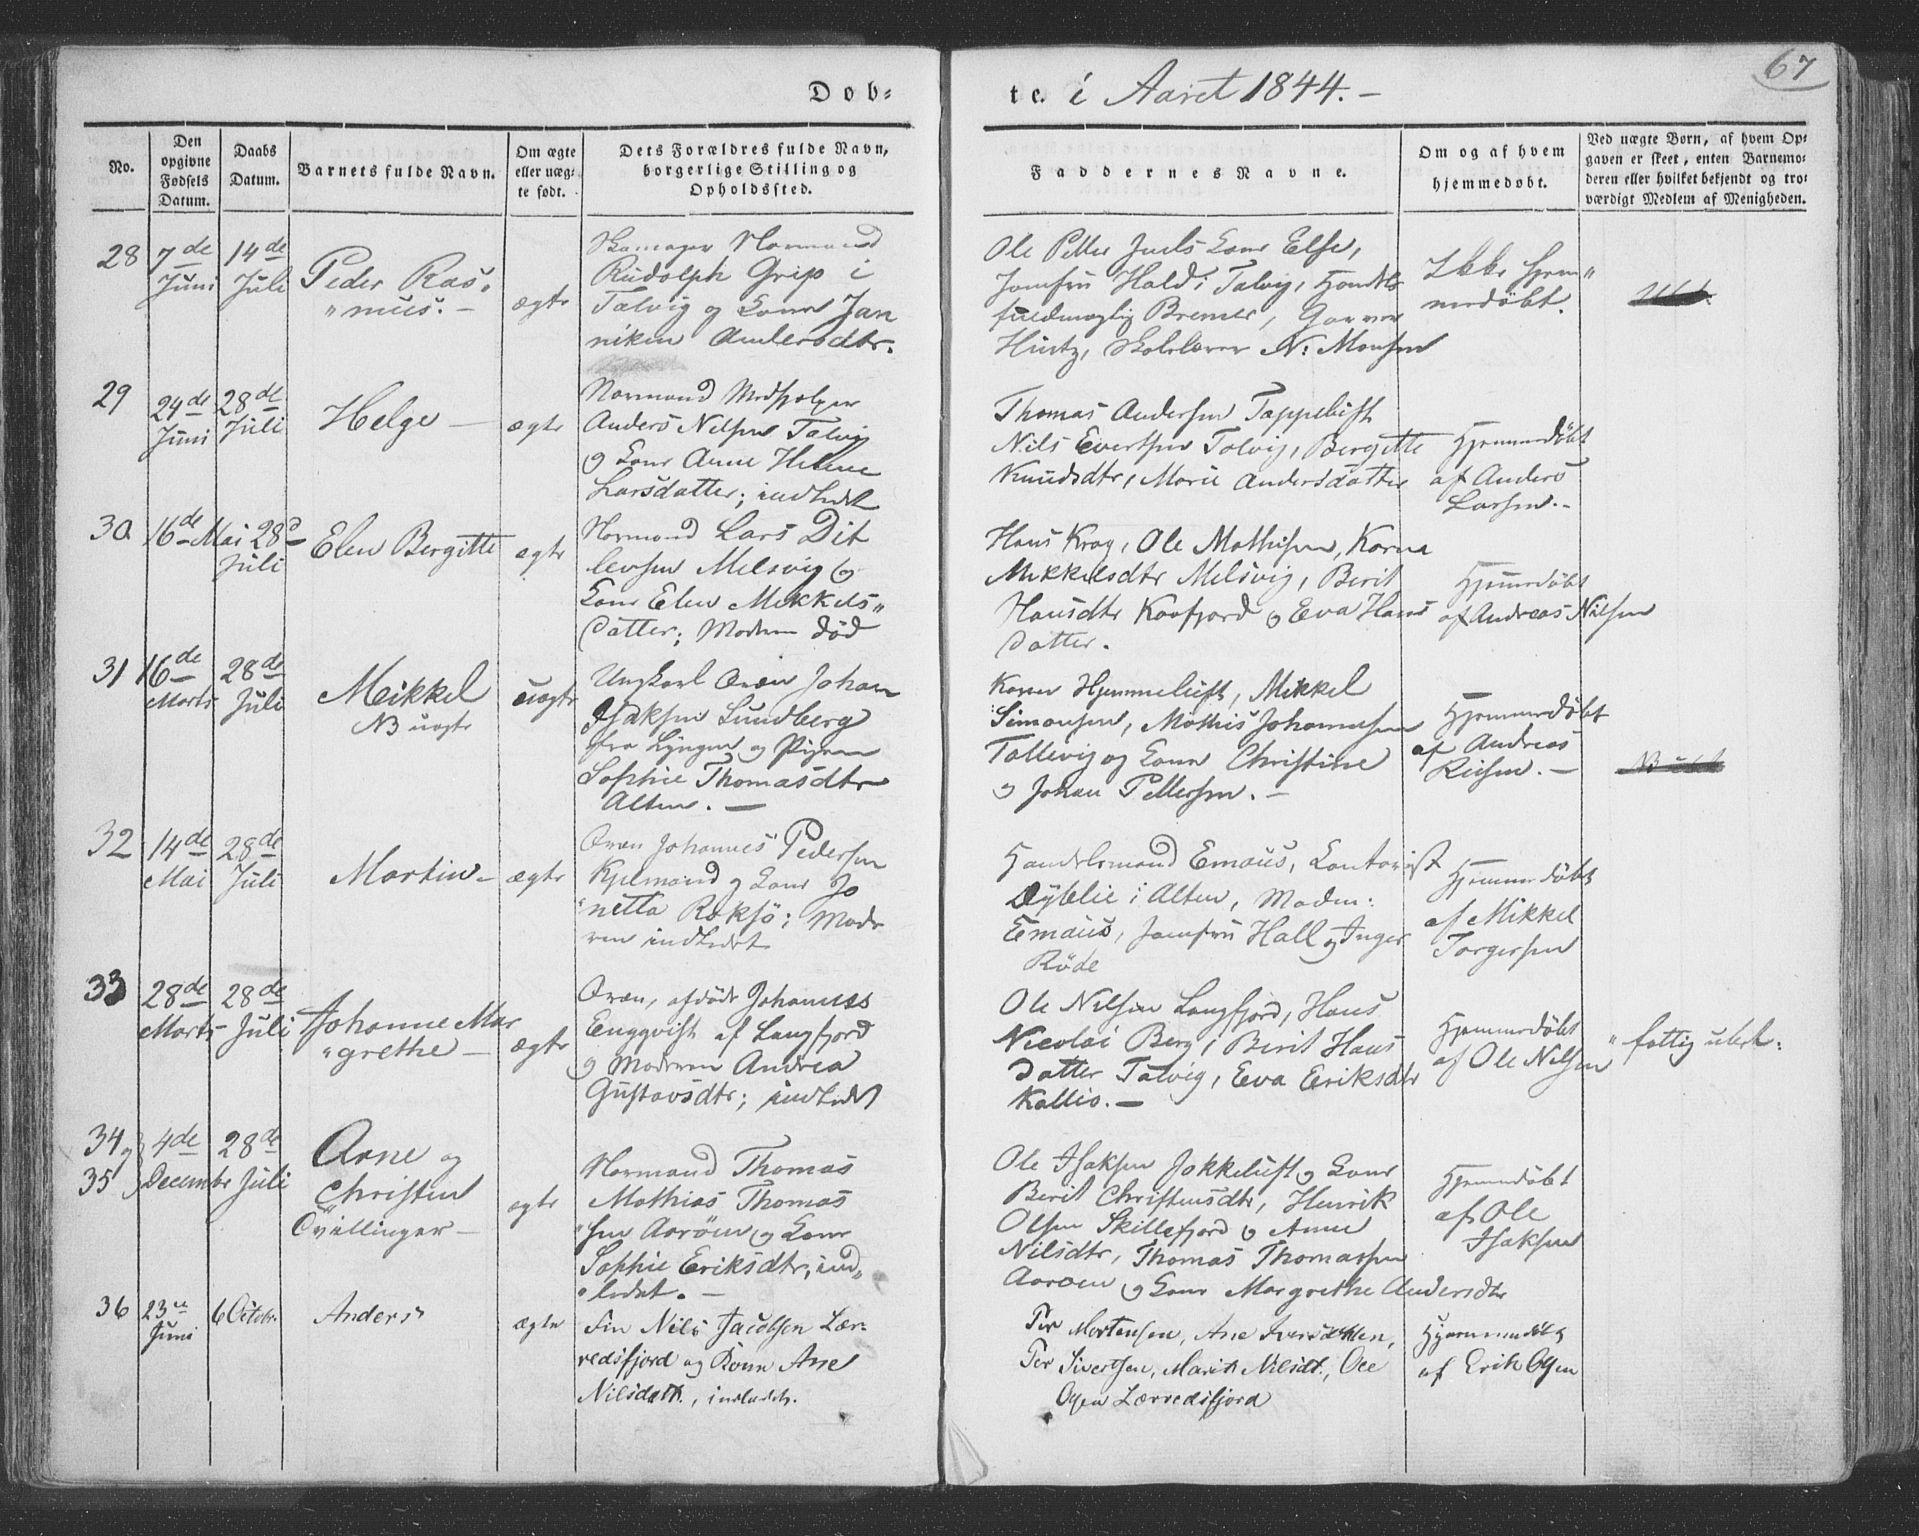 67
Dob-
te. i Aaret 1844. -
No.
Den opgivne Fødsels Datum.
Daabs Datum.
Barnets fulde Navn.
Om ægte eller uæg-te født.
Dets Forældres fulde Navn, borgerlige Stilling og Opholdssted.
Faddernes Navne.
Om og af hvem hjemmedøbt.
Ved uægte Børn, af hvem Op-gaven er skeet, enten Barnemo-deren eller hvilket bekjendt og tro-værdigt Medlem af Menigheden.
28
7de Juni
14de Juli
Peder Ras-
"mus. -
ægte
Normand
Rudolph Grip i
Talvig og Kone Jan
niken Andersdtr.
Ole Petter Juels Kone Else,
Jomfru Hald i Talvig, Handels
fuldmægtig Bremer, Garver
Hintz, Skolelærer N. Monsen
Ikke hjem"
medøbt.
29
24de Juni
28de Juli
Helge -
ægte
Normand
Anders Nilsen Talvig
og Kone Anne Helene
Larsdatter; indledet
Thomas Andersen Tappeluft
Nils Evertsen Talvig, Bergitte
Knudsdtr, Marie Andersdatter
Hjemmedøbt
af Anders
Larsen. -
30
16de Mai
28de Juli
Elen Bergitte
ægte
Normand Lars Dit
levsen Melsvig og
Kone Elen Mikkels"
datter; Modren død
Hans Krog, Ole Mathisen, Karen
Mikkelsdtr Melsvig, Berit
Hansdtr Kaafjord og Eva Hans
datter.
Hjemmedøbt
af Andreas Nilsen
31
16de Marts
28de Juli
Mikkel
NB uægte
uægte
Ungkarl Qvæn Johan
Isaksen Lundberg
fra Lyngen og Pigen
Sophie Thomasdtr
Alten. -
Karen Hjemmeluft, Mikkel
Simonsen, Mathis Johannesen
Tallevig og Kone Christine
og Johan Pettersen. -
Hjemmedøbt
af Andreas
Riisen. -
32
14de Mai
28de Juli
Martin -
ægte
Qvæn Johannes Pedersen
og Kone Jo
"netta; Mod
ren indledet
Handelsmand Emaus, Contorist
i Alten, Madm:
Emaus, Jomfru Hall og Inger
Røde
Hjemmedøbt
af Mikkel
Torgersen
33
28de Marts
28de Juli
Johanne Mar
"grethe -
ægte
Qvæn, afdøde Johannes
Engqvist af Langfjord
og Modren Andrea
Gustavsdtr; indledet
Ole Nilsen Langfjord, Hans
Nicolai Berg, Berit Hans
datter Talvig, Eva Eriksdtr
Kallio. -
Hjemmedøbt
af Ole Nilsen
" fattig ubet:
34 og
35
4de Decembr
28de Juli
Arne og
Christen
Tvillinger -
ægte
Normand Thomas
Mathias Thomas
"sen Aarøen og Kone
Sophie Eriksdtr; ind"
"ledet. -
Ole Isaksen Jokkeluft og Kone
Berit Christensdtr, Henrik
Olsen Skillefjord og Anne
Nilsdtr, Thomas Thomassen
Aarøen og Kone Margrethe Andersdtr
Hjemmedøbt
af Ole
Isaksen
36
23de Juni
6 Octobr.
Anders
ægte
Fin Nils Jacobsen Lær-
redsfjord og Kone Ane
Nilsdatt., indledet.
Per Mortensen, Ane Iversdatten,
Per Sivertsen, Marit Nilsdt., Ole
Olsen Lærredsfjord
Hjemmedøbt
af Erik Olsen